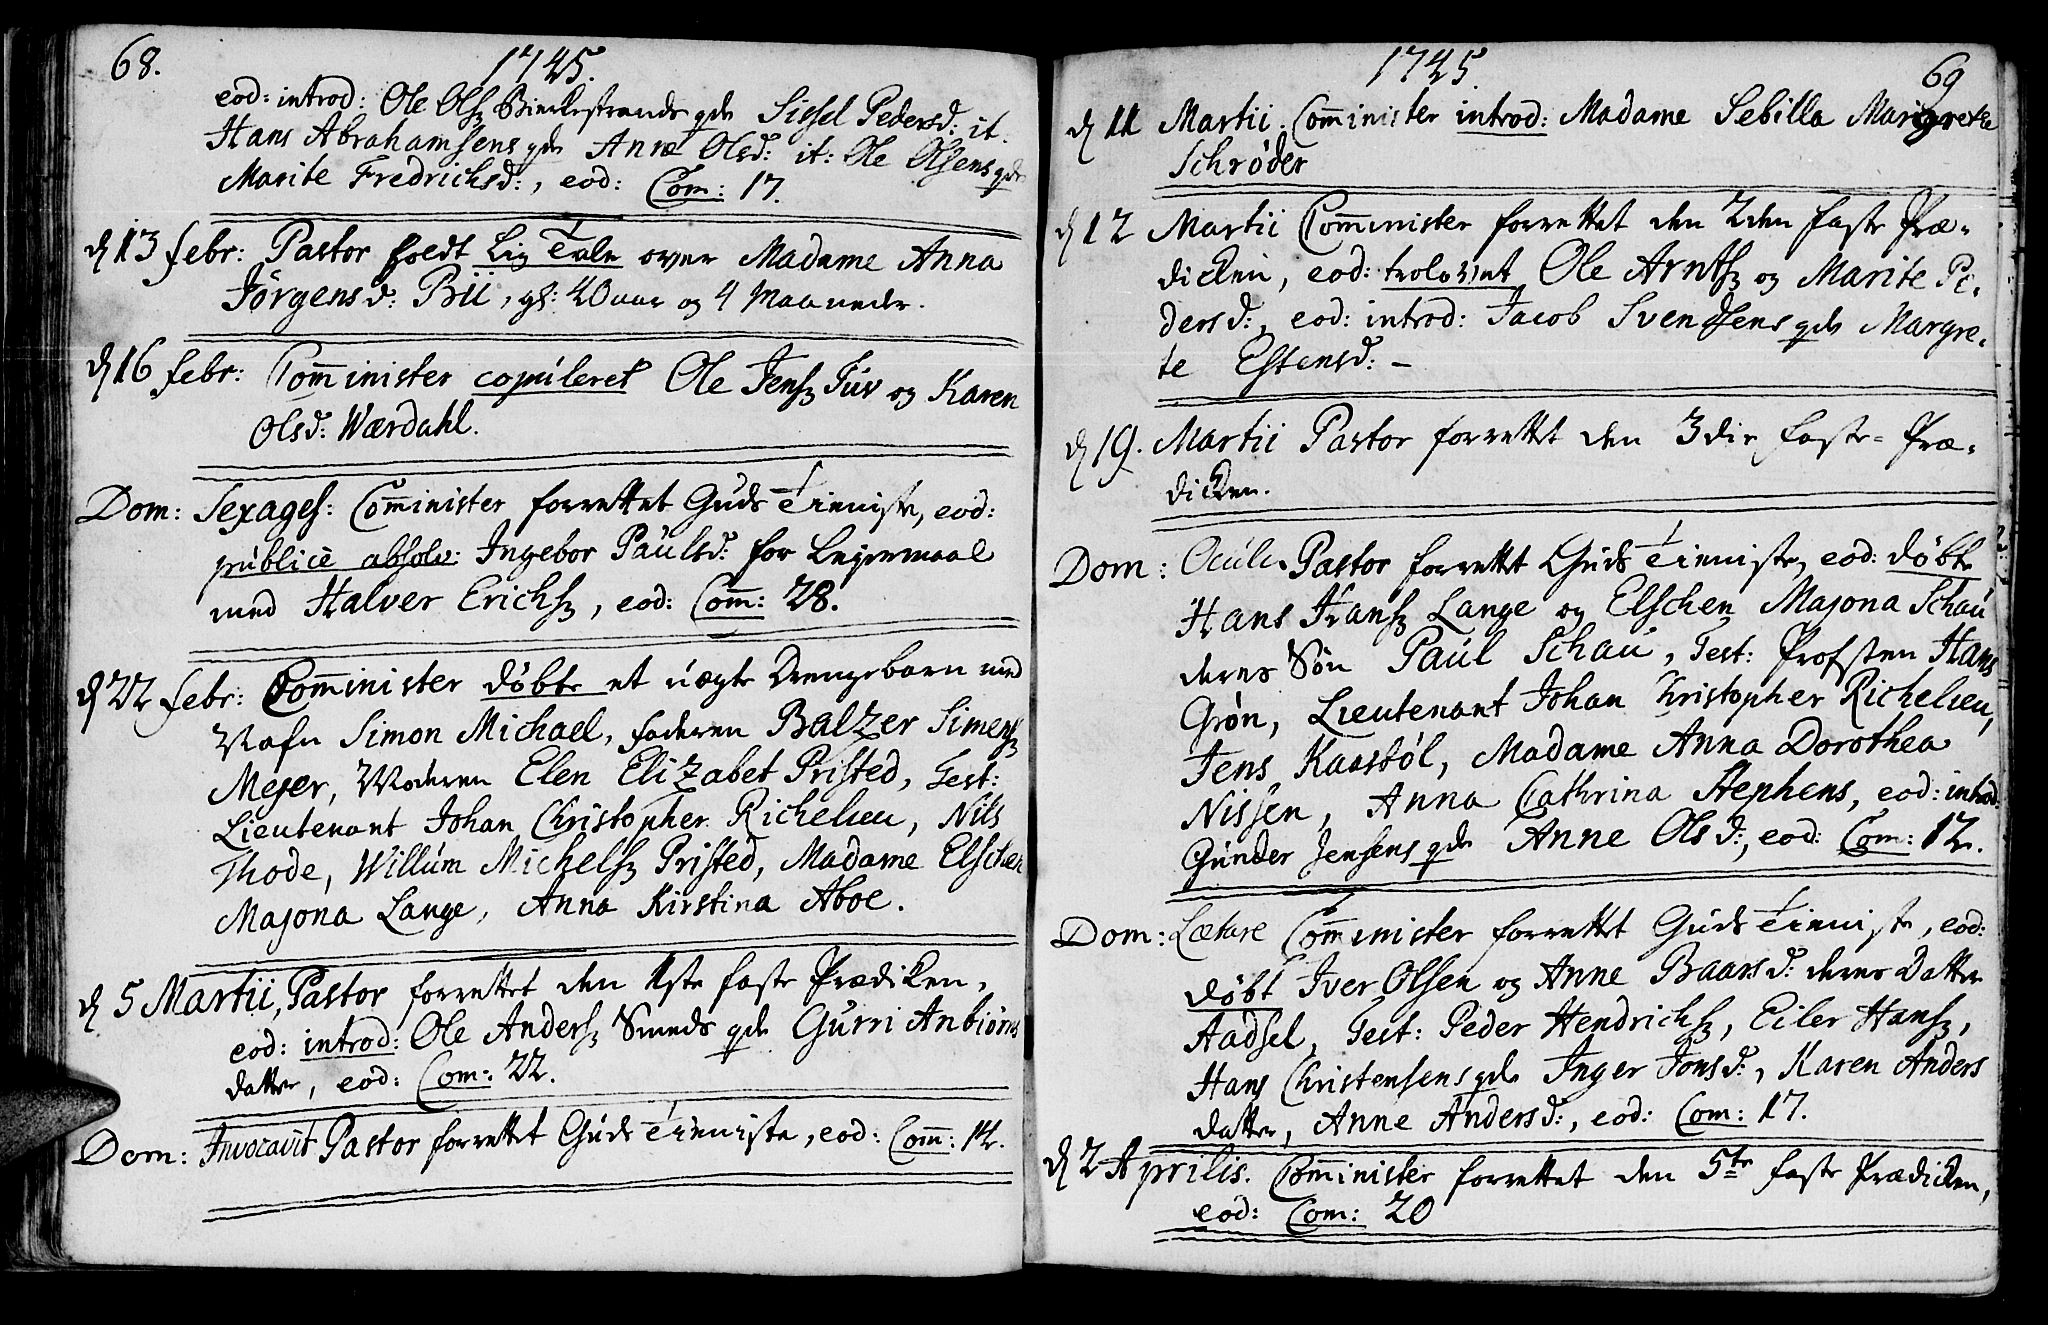 68.
1745.
eod: introd: Ole Ols: qde Sissel Pedersd: it:
Hans Abrahamsens qde Anne Olsd: it: Ole Olsens qde
Marite Fredrichsd:, eod: Com: 17.
d 13 febr: Pastor holdt Lig Tale over Madame Anna
Jørgensd: Bii, gl: 40 aar og 4 Maaneder.
d 16 febr: Comminister copuleret Ole Jens: Juv og Karen
Olsd: Wærdahl.
Dom: Sexages: Comminister forrettet Guds Tieniste, eod:
publicè absolv: Ingebor Paulsd: for Lejermaal
med Halver Erichs:, eod: Com: 28.
d 22 febr: Comminister døbte et uægte Drengebarn med
Nafn Simon Michael, faderen Balzer Simens:
Mejer, Moderen Elen Elizabet Pristed, Test:
Lieutenant Johan Christopher Richelieu, Nils
Thode, Willum Michels: Pristed, Madame Elschen
Majona Lange, Anna Kirstina Aboe.
d 5 Martii, Pastor forrettet den 1ste faste Prædiken,
eod: introd: Ole Anders: Smeds qde Gurri Anbiørns
datter, eod: Com: 22.
Dom: Invocavit Pastor forrettet Guds Tieniste, eod: Com: 14.
1745.
69
d 11 Martii. Comminister introd: Madame Sebilla Margrete
Schrøder
d 12 Martii Comminister forrettet den 2den faste Præ-
dicken, eod: trolovet Ole Arnts: og Marite Pe-
dersd:, eod: introd: Jacob Svendsens qde Margre-
te Estensd: -
d 19. Martii Pastor forrettet den 3die faste-Præ-
dicken.
Dom: Oculi Pastor forrettet Guds Tieniste, eod: døbte
Hans Hans: Lange og Elschen Majona Schau
deres Søn Paul Schau, Test: Profsten Hans
Grøn, Lieutenant Johan Christopher Richelieu,
Jens Kaasbøl, Madame Anna Dorothea
Nissen, Anna Cathrina Stephens, eod: introd:
Gunder Jensens qde Anne Olsd:, eod: Com: 12.
Dom: Lætare Comminister forrettet Guds Tieniste, eod:
døbt Iver Olsen og Anne Baarsd: deres Datter
Aadsel, Test: Peder Hendrichs:, Eiler Hans:,
Hans Christensens qde Inger Jonsd:, Karen Anders
datter, Anne Andersd:, eod: Com: 17.
d 2 Aprilis. Comminister forrettet den 5te faste Prædicken,
eod: Com: 20